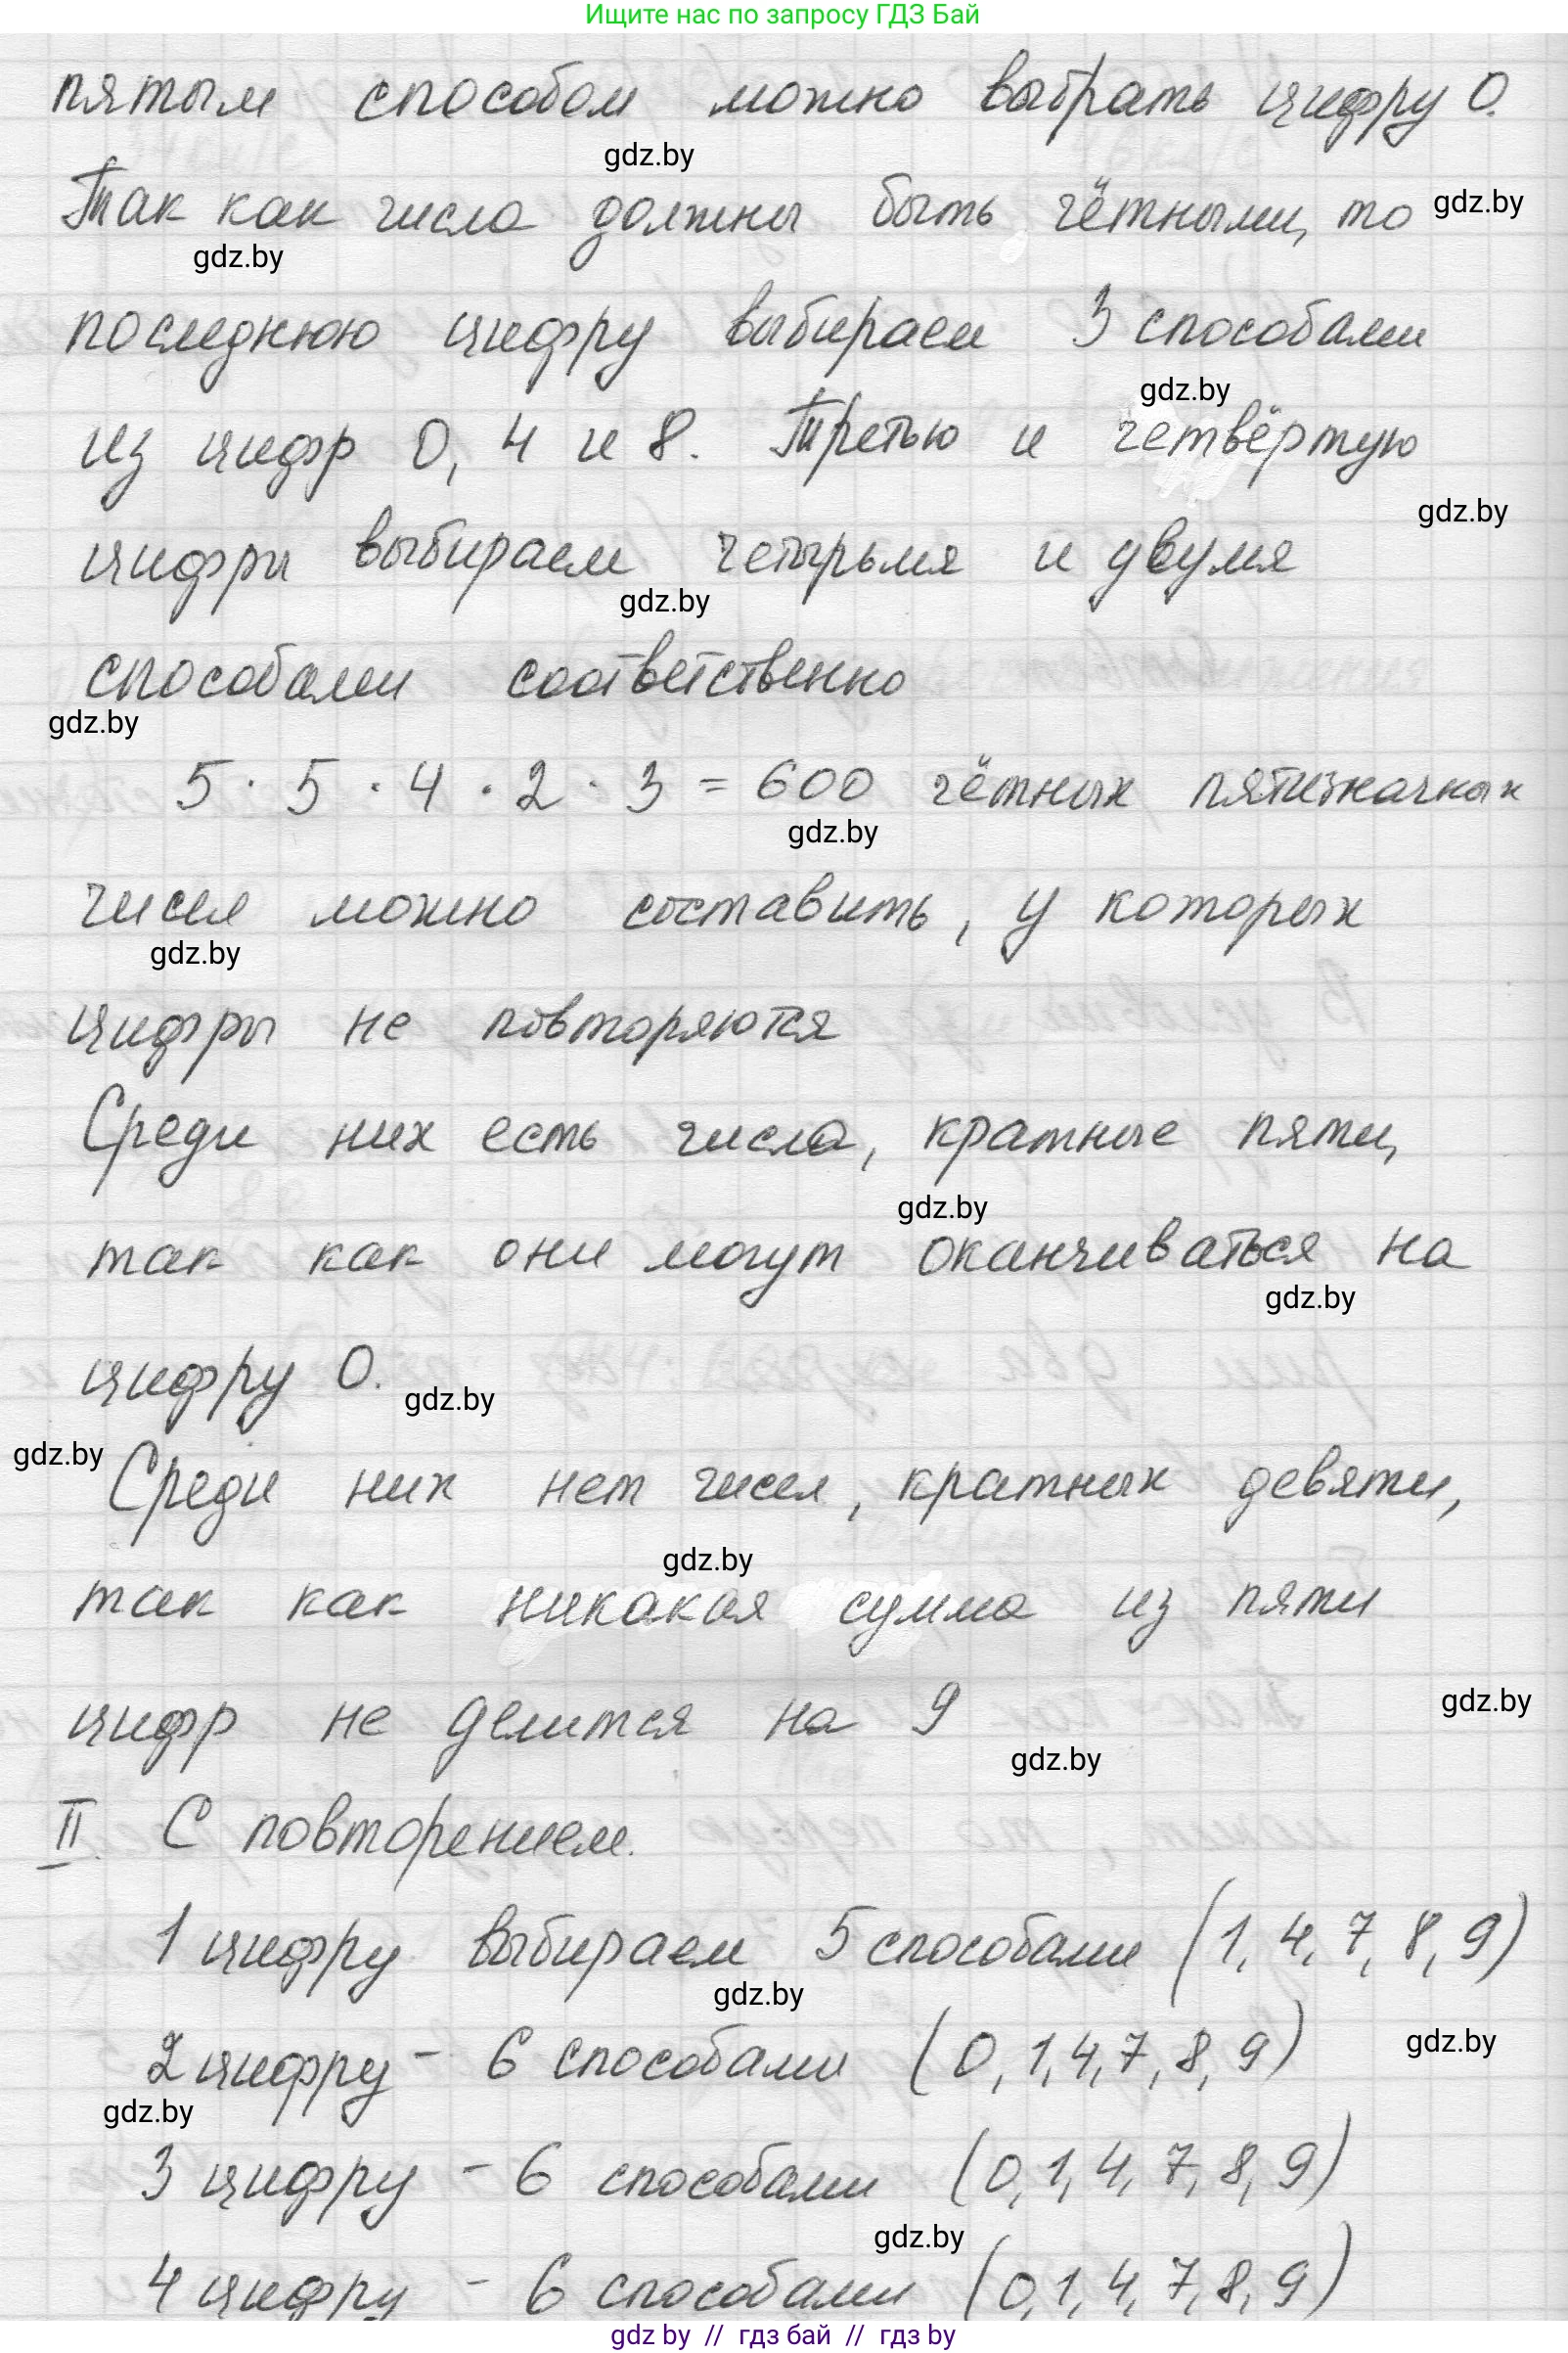 Ищите нас по запросу ГДЗ Бай
пятым способом можно выбрать цифру 0.
gdz.by
Так как числа должны быть чётными, то
gdz.by
gdz.by
последнюю цифру выбираем 3 способами
gdz.by
из цифр 0, 4 и 8. Третью и четвёртую
gdz.by
цифры выбираем четырьмя и двумя
gdz.by
способами соответственно
gdz.by
5 · 5 · 4 · 2 · 3 = 600 чётных пятизначных
gdz.by
чисел можно составить, у которых
gdz.by
цифры не повторяются
Среди них есть числа, кратные пяти,
gdz.by
так как они могут оканчиваться на
gdz.by
цифру 0.
gdz.by
gdz.by
Среди них нет чисел, кратных девяти,
gdz.by
так как никакая сумма из пяти
цифр не делится на 9
gdz.by
gdz.by
II. С повторением.
1 цифру выбираем 5 способами (1, 4, 7, 8, 9)
gdz.by
2 цифру - 6 способами (0, 1, 4, 7, 8, 9)
gdz.by
gdz.by
3 цифру - 6 способами (0, 1, 4, 7, 8, 9)
gdz.by
4 цифру - 6 способами (0, 1, 4, 7, 8, 9)
gdz by // гдз бай // гдз by